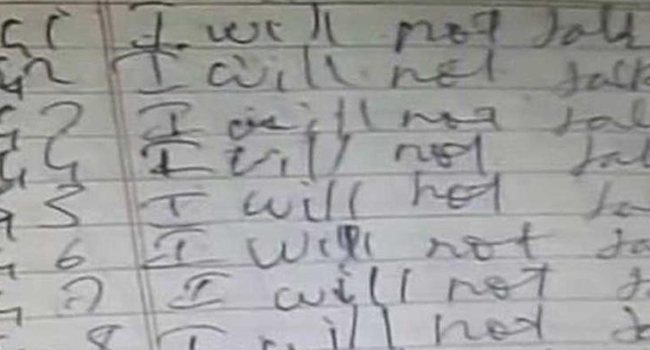 41 I will not talk
42 I will not talk
43 I will not tal
44 I will not tal
45 I will not ta
46 I will not ta
47 I will not
8 I will not